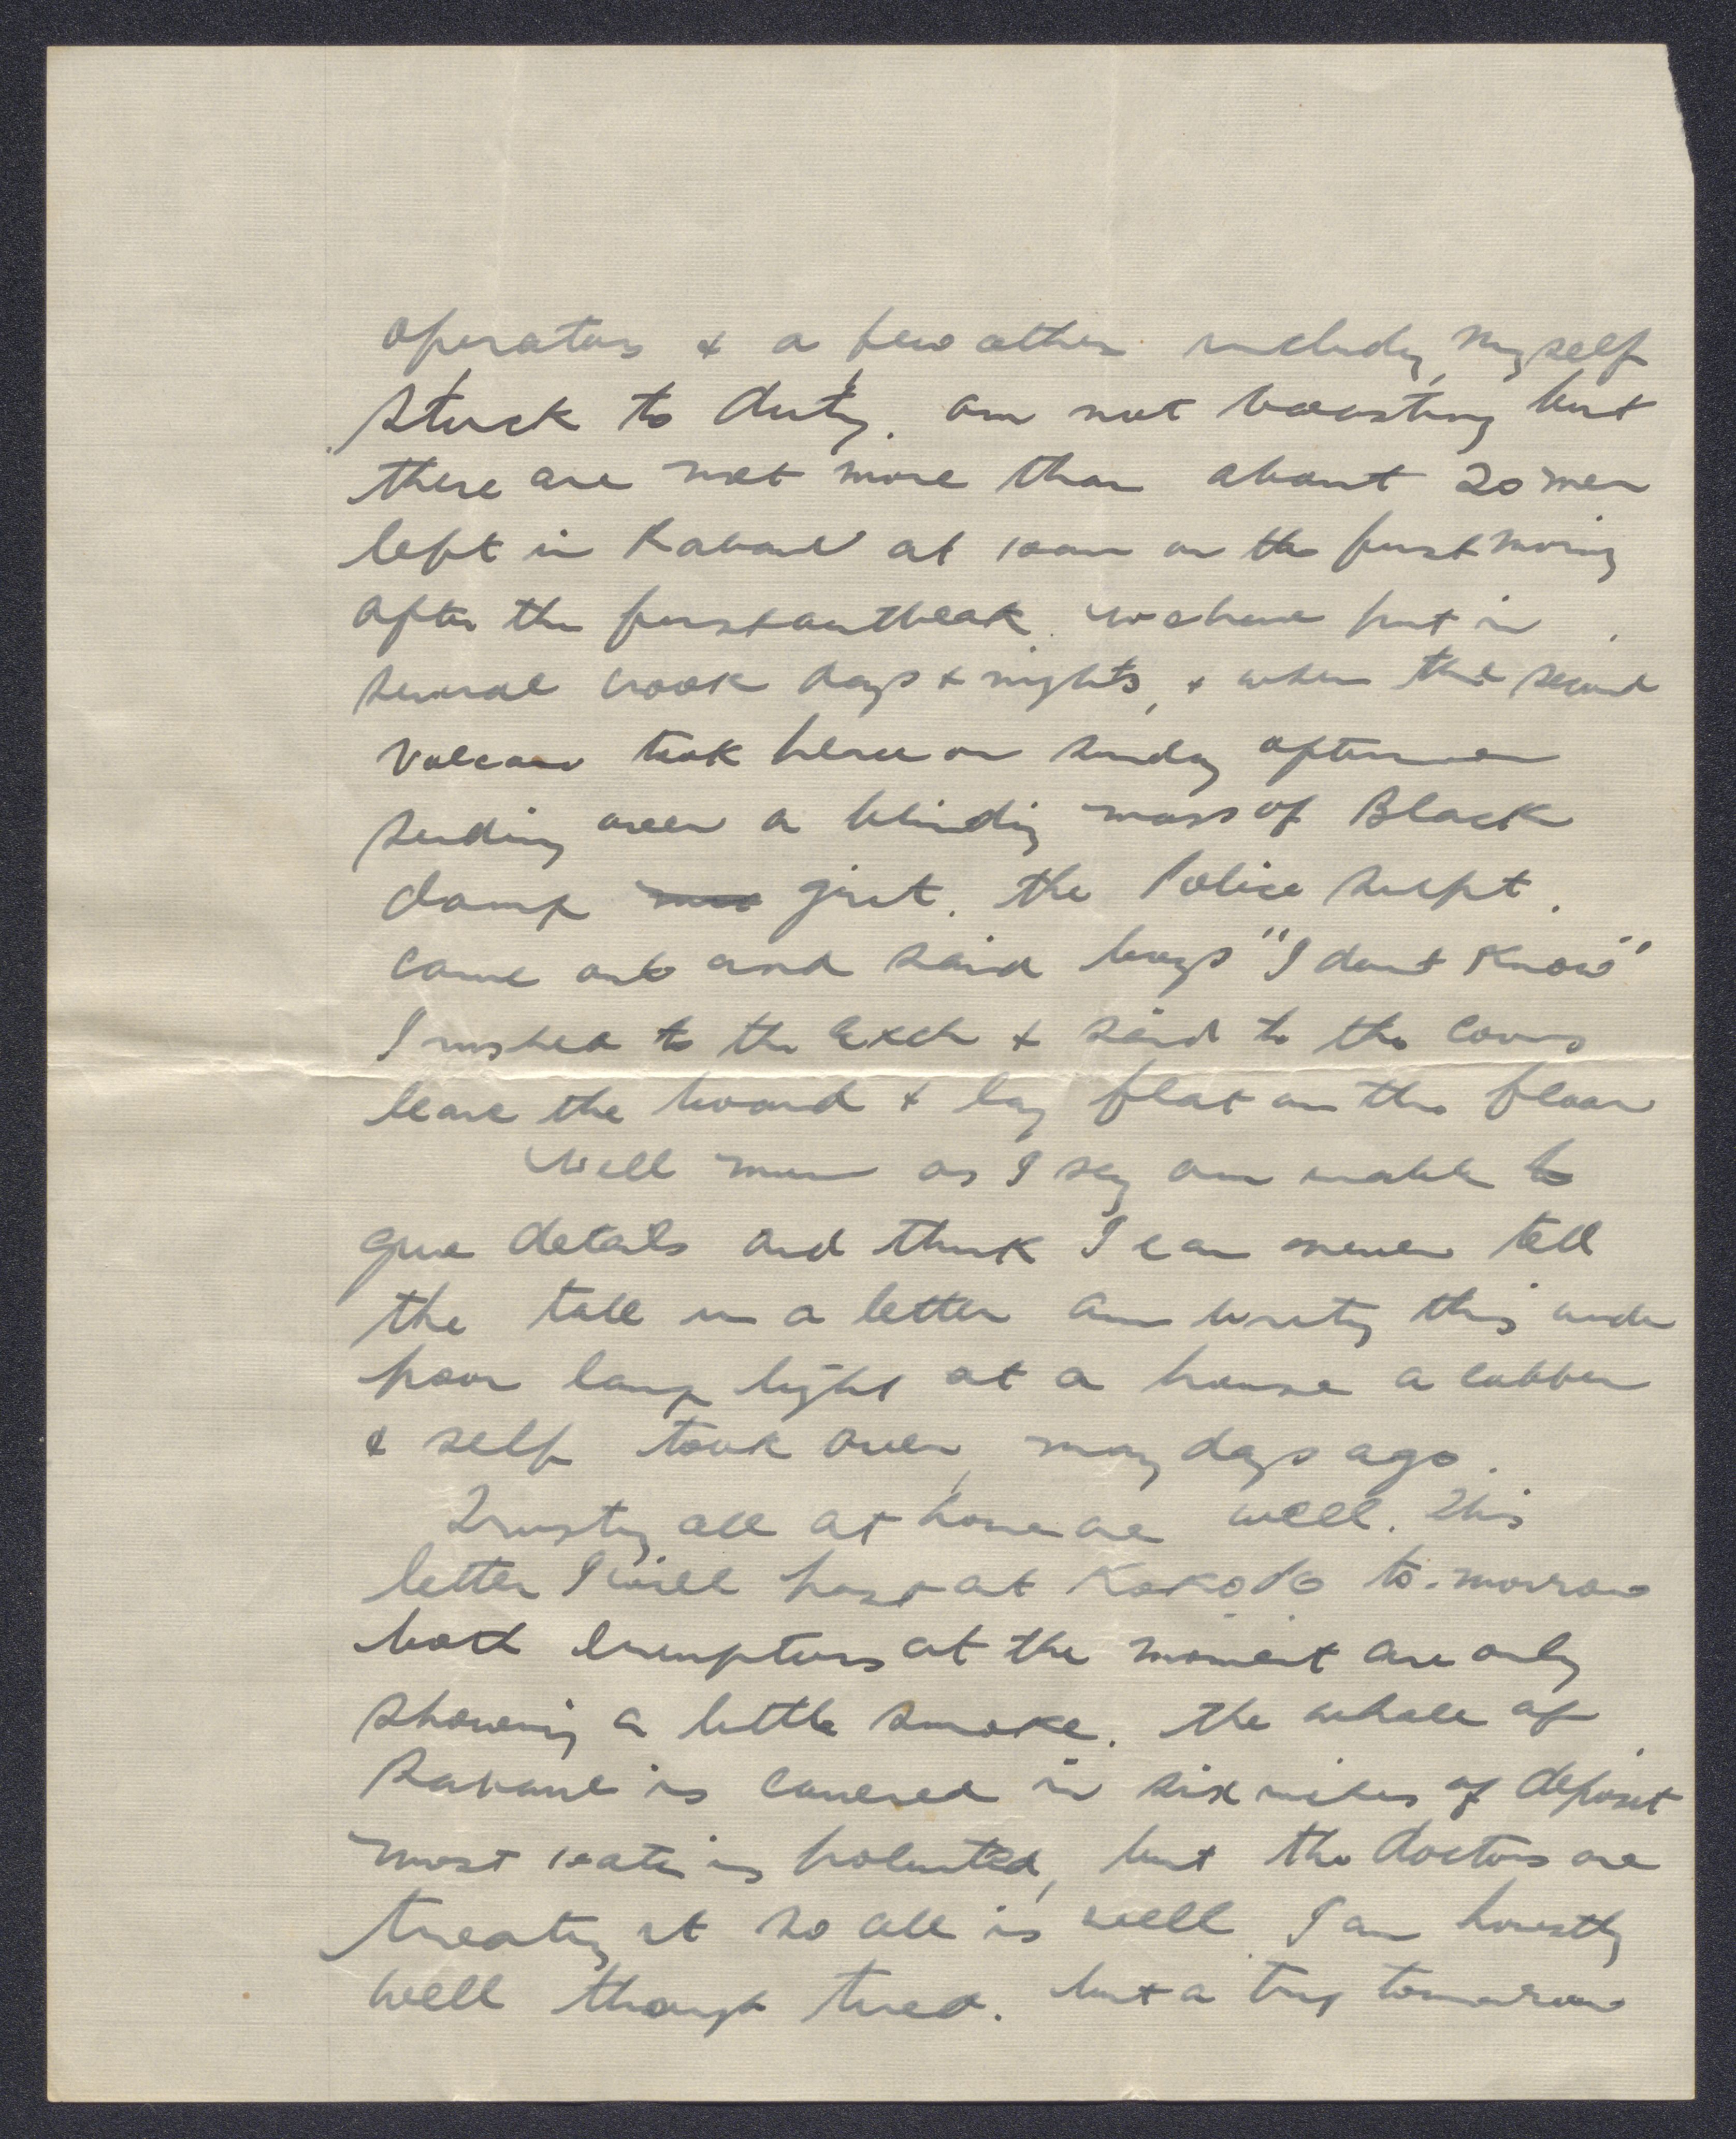 operators & a few others includg myself
stuck to duty. am not boasting but
there are not more than about 20 men
left in Rabaul at 10am on the first morning
after the first outbreak. we have put in
several crook days & nights, & when the second
volcano took place on Sunday afternoon
sending over a blinding mass of Black
damp grit. the Police Supt.
came out and said boys "I dont know"
I rushed to the Exch & said to the coons
leave the board & lay flat on the floor
Well mum as I say am unable to
give details and think I can never tell
the tale in a letter am writing this under
poor lamp light at a house a cobber
& self took over, many days ago.
Trusting all at home are well. This
letter I will post at Kokopo to-morrow
both Erruptions at the moment are only
showing a little smoke. the whole of
Rabaul is covered in six inches of deposit
most water is poluted, but the doctors are
treating it so all is well. I am honestly
well though tired. but a trip tomorrow